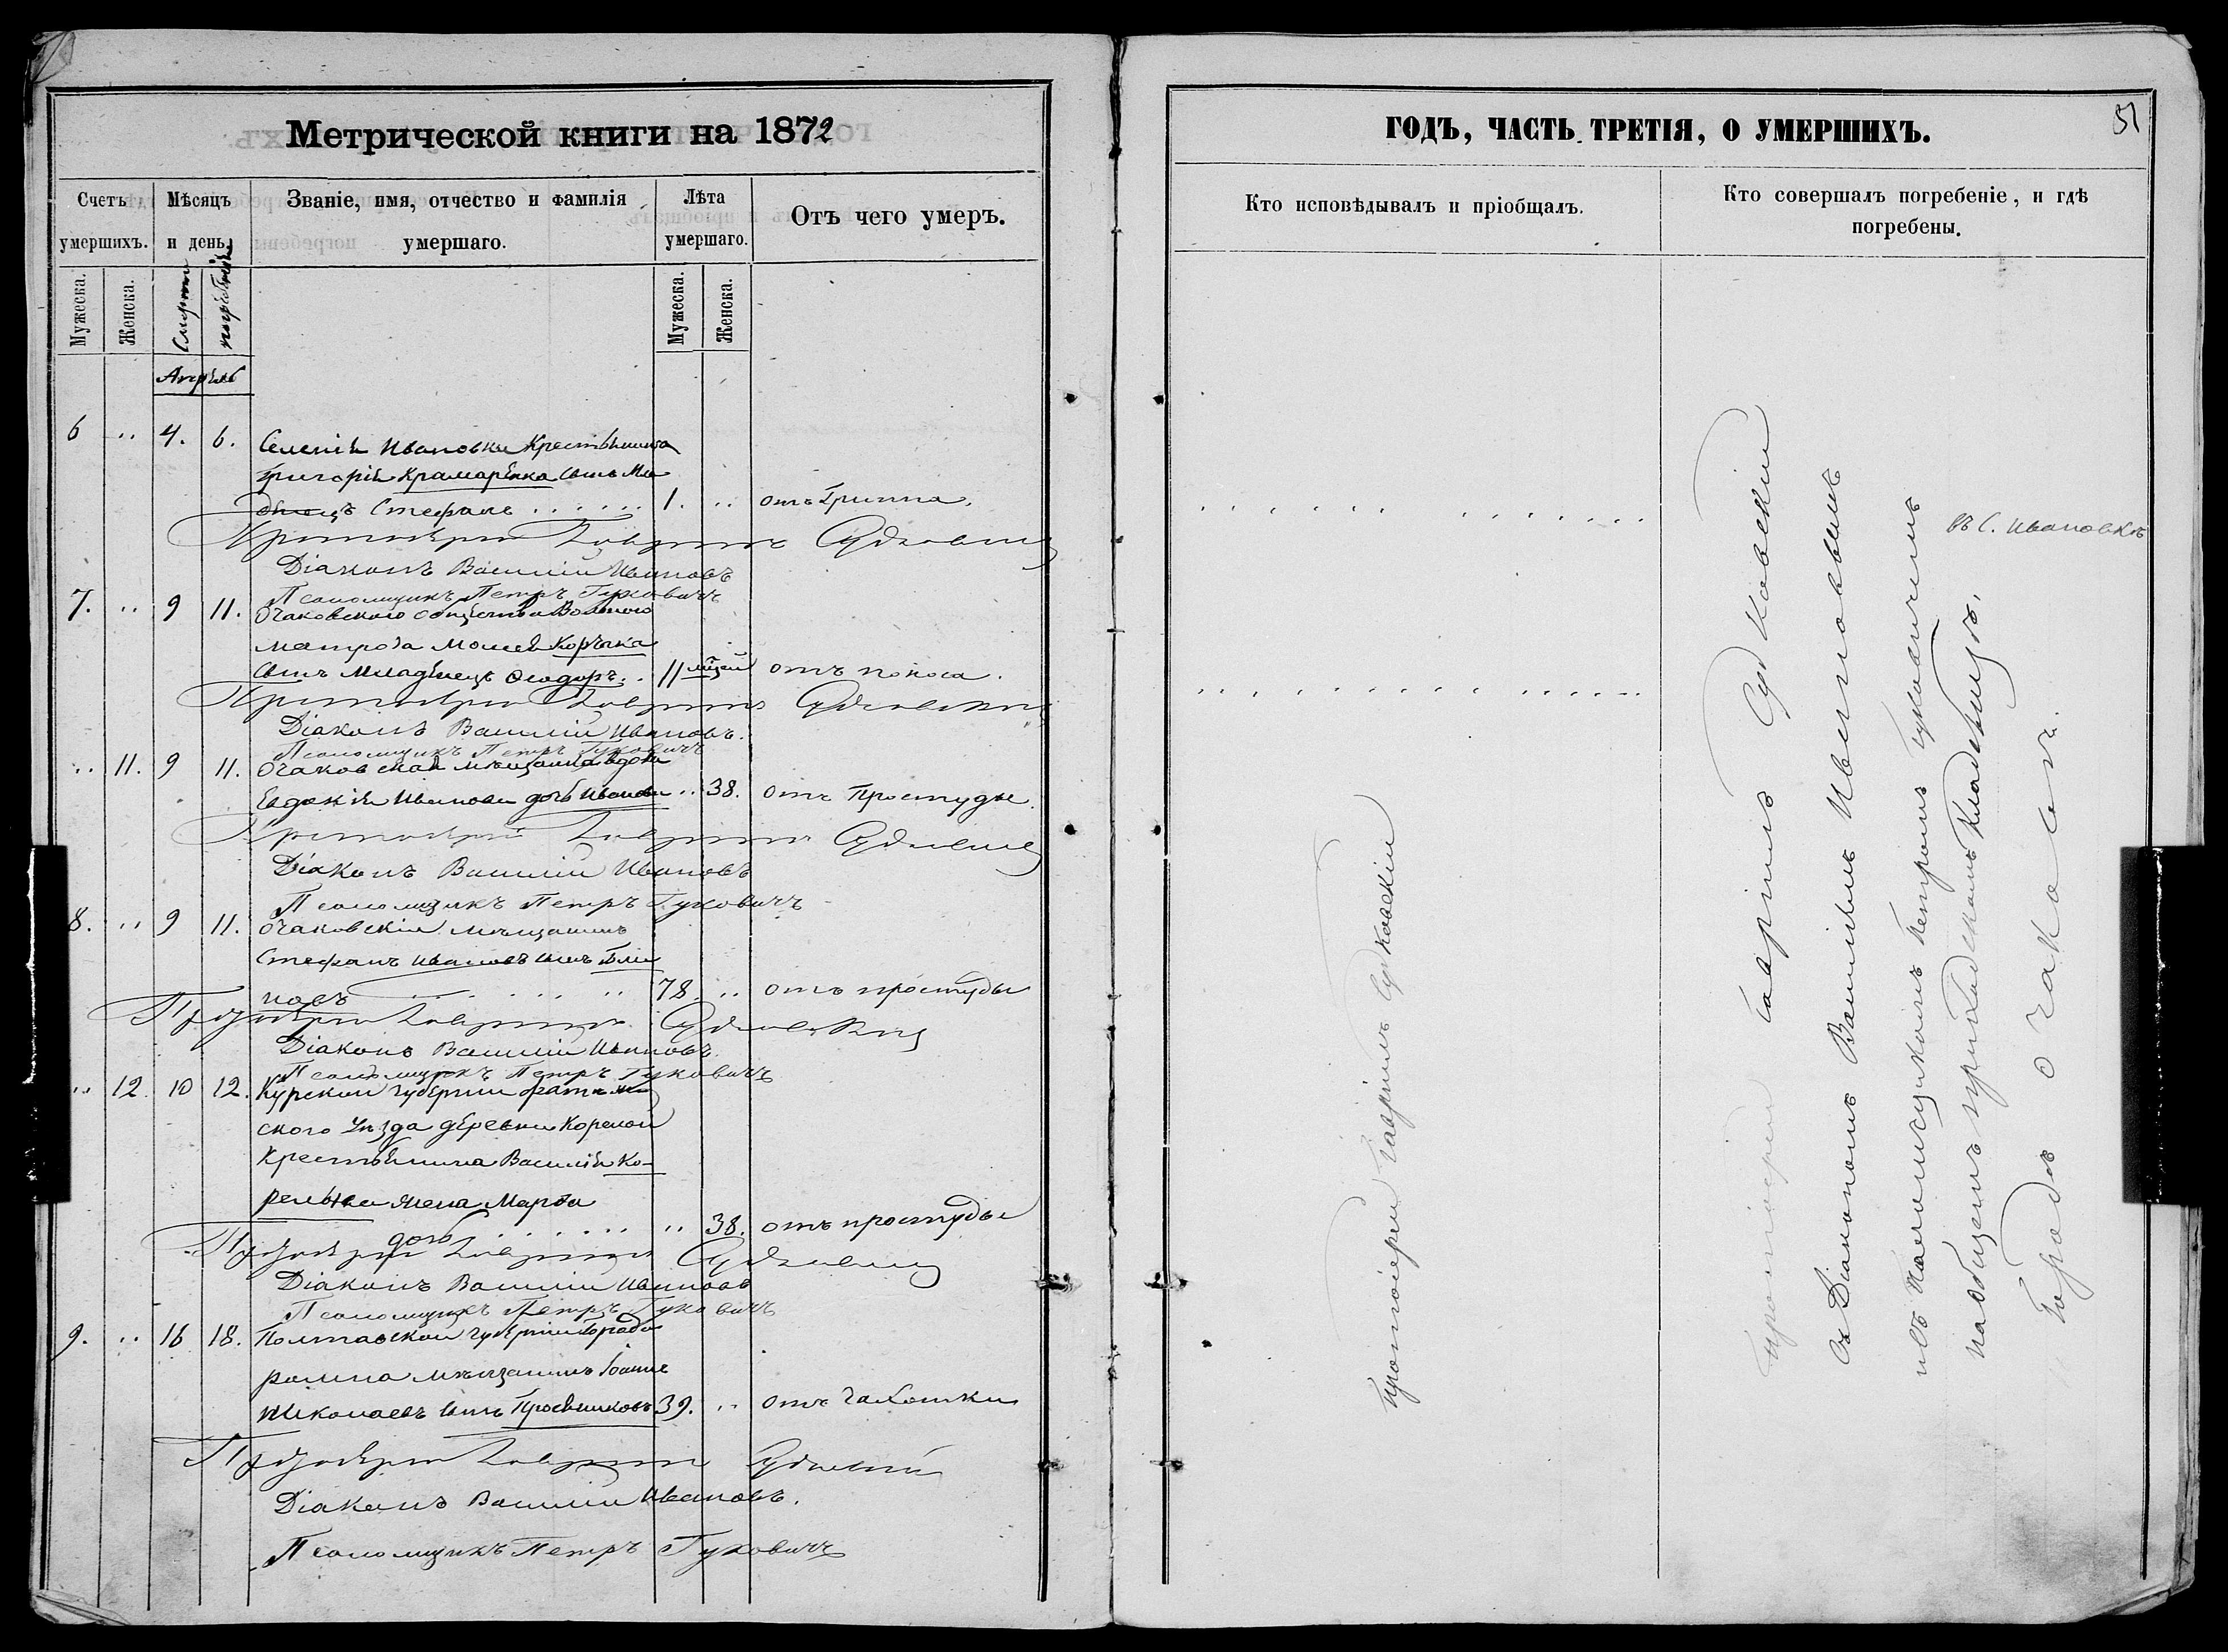 Метрической книги на 1872
Счетъ умершихъ.
Мѣсяцъ и день.
Званіе, имя, отчество и фамилія умершаго.
Лѣта умершаго.
Отъ чего умеръ.
Мужеска.
Женска.
Смерти
погребенія
Мужеска.
Женска.
Апрѣль
6 .. 4. 6. Селенія Ивановки Крестьянина
Григорія Крамаренка сынъ Мла
денецъ Стефанъ 1. .. отъ Гриппа.
Протоіерей Гавріилъ Судковскій
Діаконъ Василій Ивановъ
Псаломщикъ Петръ Гуковичъ
7. .. 9 11. Очаковскаго общества Вольнаго
матроза Моисея
сынъ Младенецъ Ѳеодоръ. 11 мѣсяц. отъ поноса.
Протоіерей Гавріилъ Судковскій
Діаконъ Василій Ивановъ.
Псаломщикъ Петръ Гуковичъ
.. 11. 9 11. Очаковская мѣщанка вдова
Евдокія Иванова дочь Иванова .. 38. отъ Простуды.
Протоіерей Гавріилъ Судковскій
Діаконъ Василій Ивановъ
Псаломщикъ Петръ Гуковичъ
8. .. 9 11. Очаковскій мѣщанинъ
Стефанъ Ивановъ сынъ Бли
новъ 78. .. отъ простуды
Протоіерей Гавріилъ Судковскій
Діаконъ Василій Ивановъ.
Псаломщикъ Петръ Гуковичъ
.. 12. 10 12. Курской Губерніи
ского Уѣзда деревни Кореной
Крестьянина Василія Ко-
жена Марѳа
дочь .. 38. отъ простуды
Протоіерей Гавріилъ Судковскій
Діаконъ Василій Ивановъ
Псаломщикъ Петръ Гуковичъ
9. .. 16 18. Полтавской Губерніи Города
ромна мѣщанинъ Іоаннъ
Николаевъ сынъ 39. .. отъ чахотки
Протоіерей Гавріилъ Судковскій
Діаконъ Василій Ивановъ.
Псаломщикъ Петръ Гуковичъ
ГОДЪ, ЧАСТЬ ТРЕТІЯ, О УМЕРШИХЪ.
51
Кто исповѣдывалъ и пріобщалъ.
Кто совершалъ погребеніе, и гдѣ погребены.
въ С. Ивановкѣ
Протоіерей Гавріилъ Судковскій
Протоіерей Гавріилъ Судковскій
съ Діакономъ Василіемъ Ивановымъ
и съ Псаломщикомъ Петромъ Гуковичемъ
на общемъ приходскомъ Кладбищѣ,
Города Очакова.